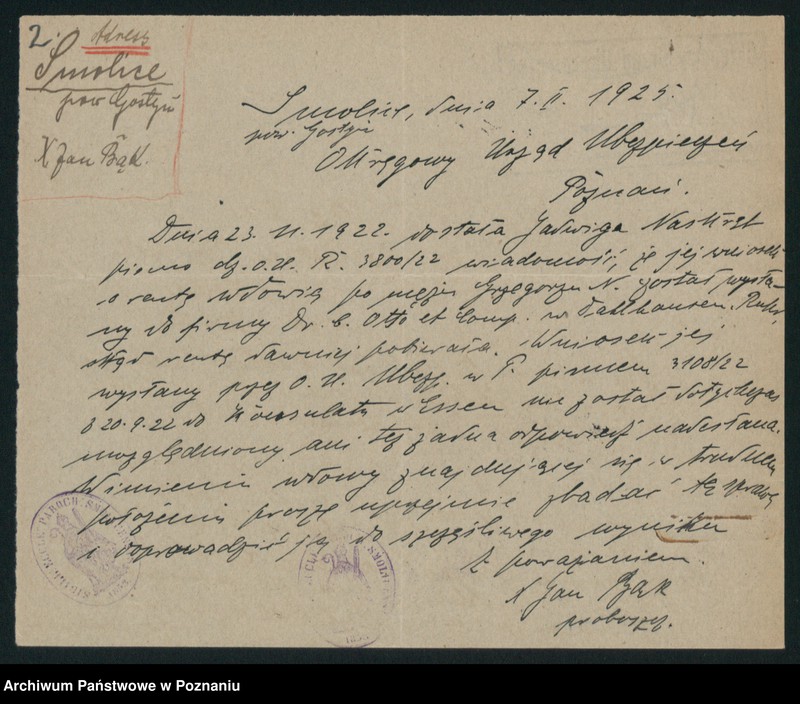 2. Adresz
Smolice
pow Gostyń
X Jan Bąk.
Smolice, dnia 7. II. 1925.
pow. Gostyń
Okręgowy Urząd Ubezpieczeń
Poznań.
Dnia 23. 11. 1922. dostała Jadwiga Naskręt
pismo dz. O.U. R. 3800/22 wiadomość, że jej wniosek
o rentę wdowią po mężu Grzegorzu N. został wysła-
ny do firmy Dr. C. Otto et Comp. w Dahlhausen. Ruhr,
skąd rentę dawniej pobierała. Wniosek jej
wysłany przez O. U. Ubezp. w P. pismem 3108/22
z 20.9.22 do Konsulatu w Essen nie został dotychczas
uwzględniony ani też żadna odpowiedź nadesłana.
W imieniu wdowy znajdującej się w trudnem
położeniu proszę uprzejmie zbadać tę sprawę
i doprowadzić ją do szczęśliwego wyniku
Z poważaniem.
X Jan Bąk
proboszcz.
Archiwum Państwowe w Poznaniu